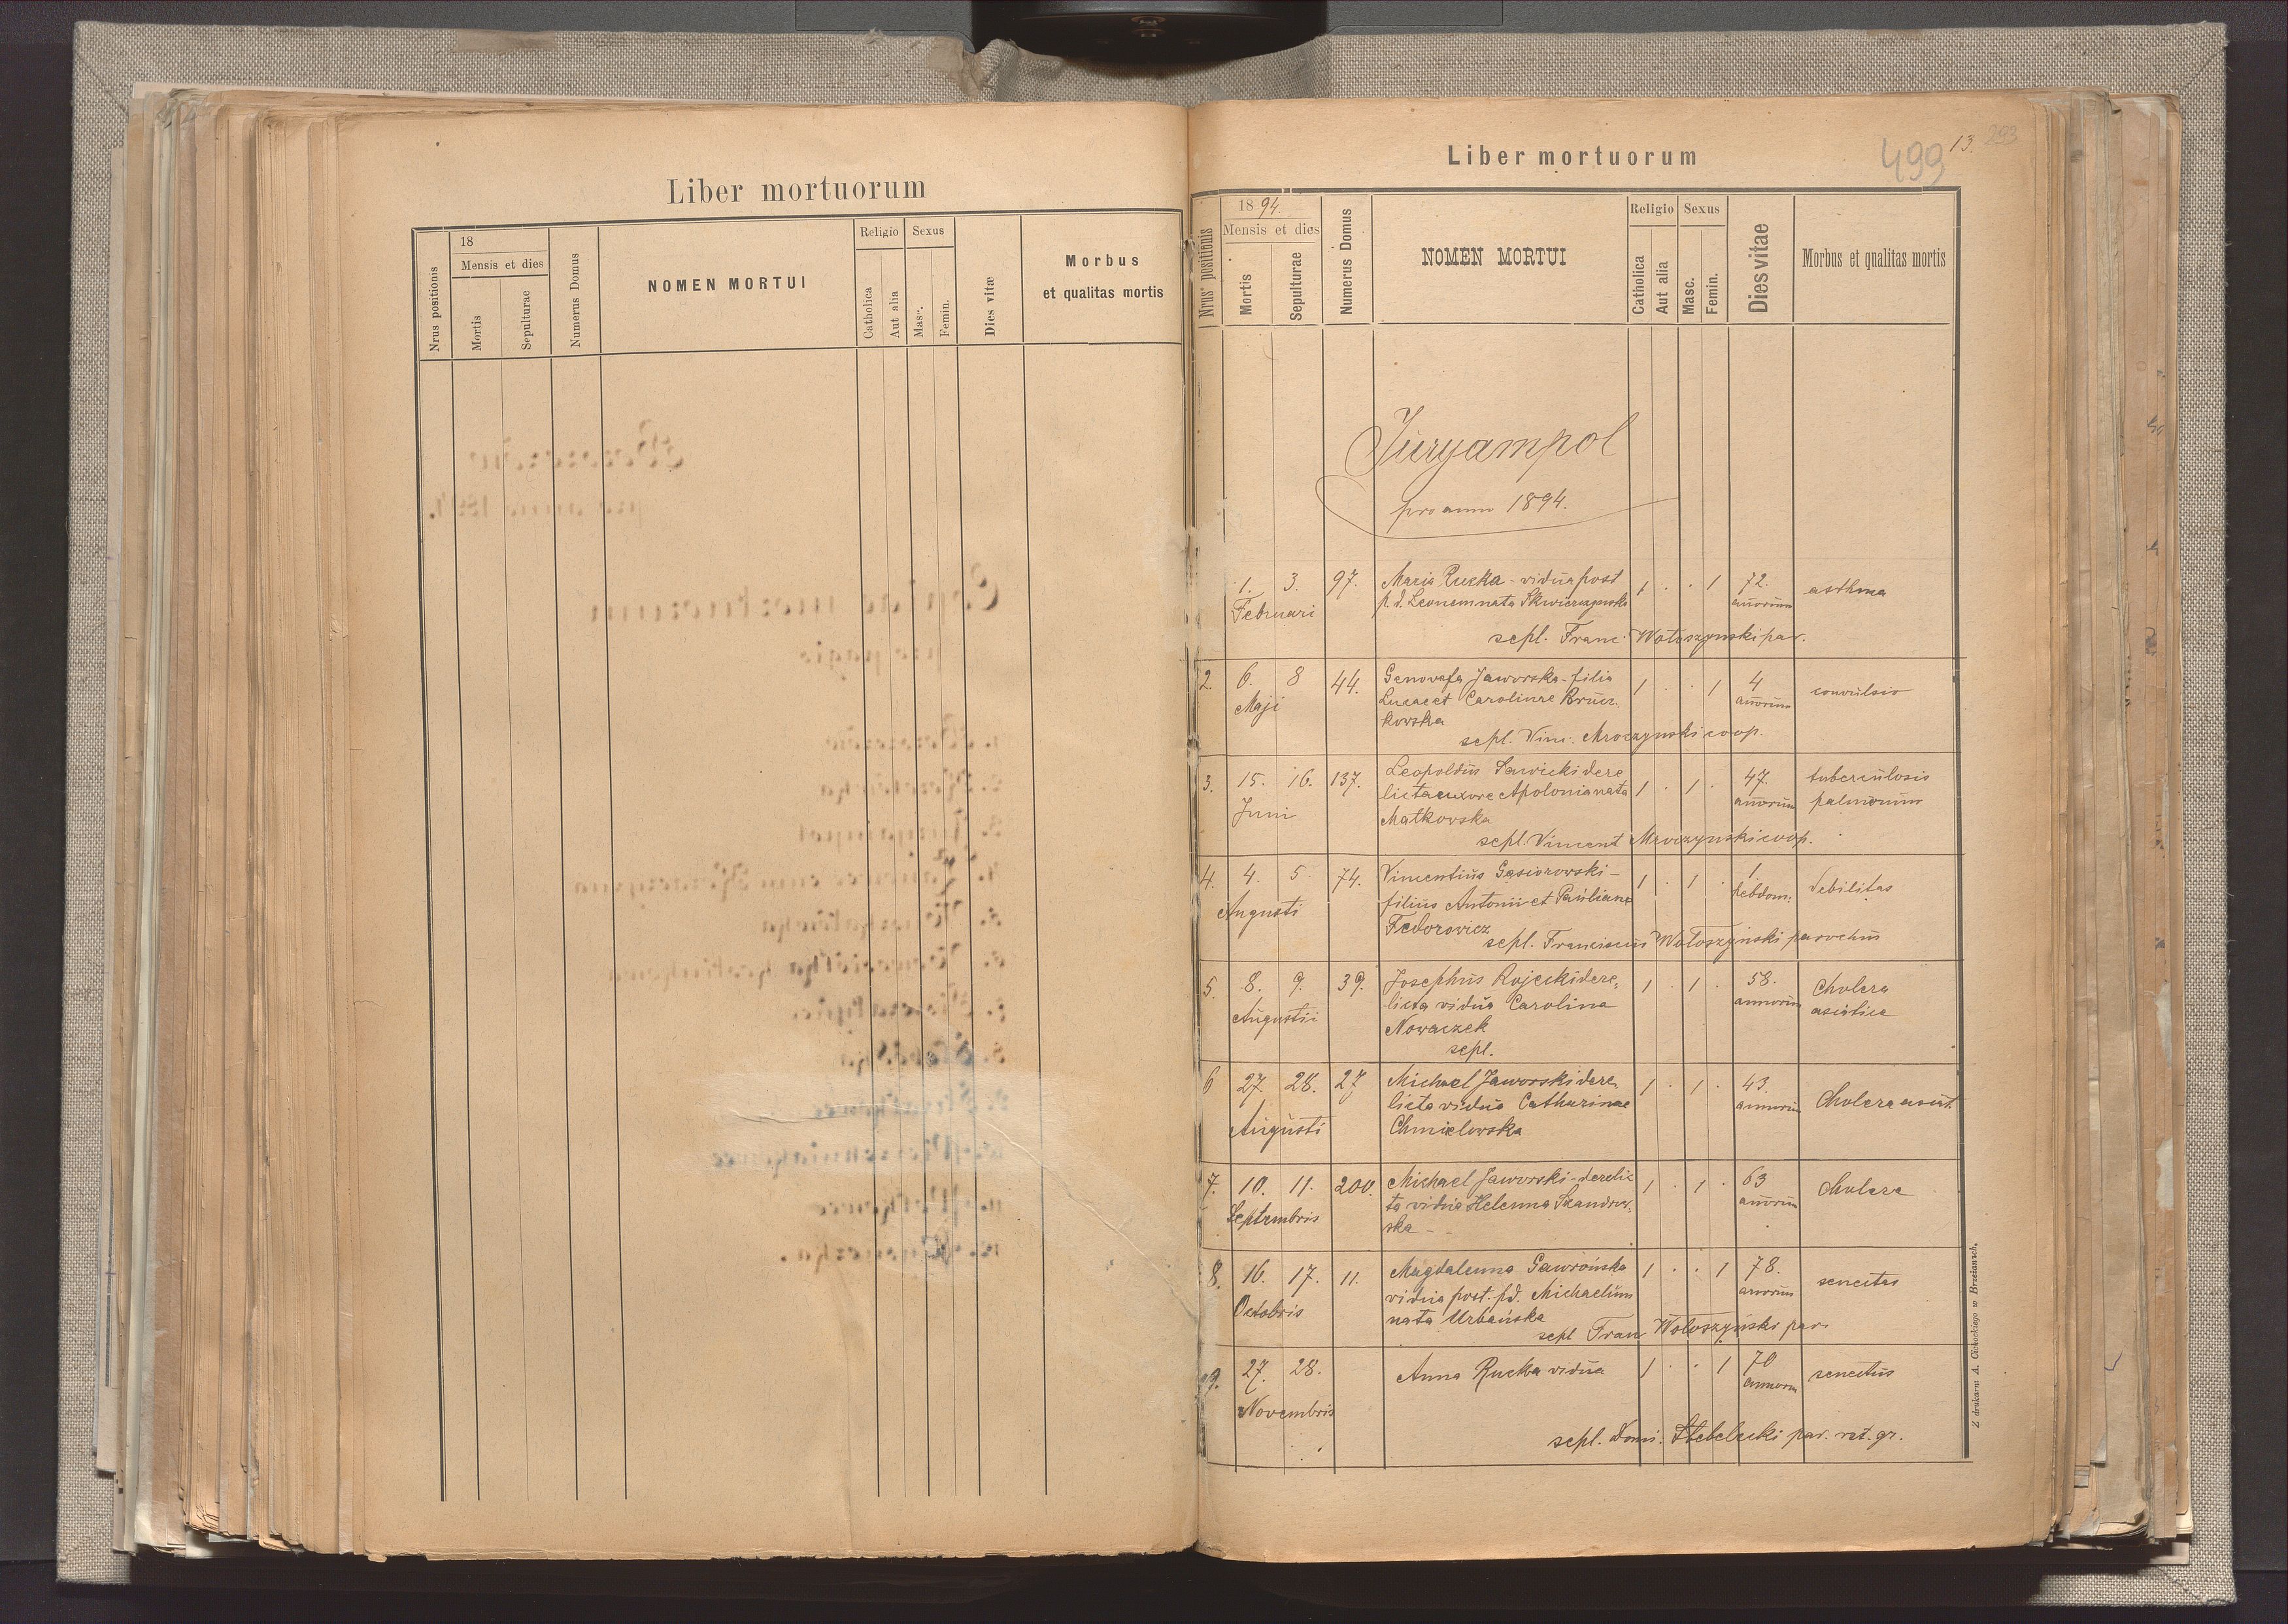 Liber mortuorum
Nrus positionis
18
Mensis et dies
Mortis
Sepulturae
Numerus Domus
NOMEN MORTUI
Religio
Catholica
Aut alia
Sexus
Masc.
Femin.
Dies vitæ
Morbus
et qualitas mortis
Liber mortuorum
499
13.
293
Nrus positionis
1894.
Mensis et dies
Mortis
Sepulturae
Numerus Domus
NOMEN MORTUI
Religio
Catholica
Aut alia
Sexus
Masc.
Femin.
Dies vitae
Morbus et qualitas mortis
Juryampol
pro anno 1894.
1. 3. 97. Maria Rucka - vidua post 1 . . 1 72. asthma
Februari p. d. Leonem nata annorum
sepl. Franc. Wołoszynski par.
2. 6. 8 44. Genovefa Jaworska - filia 1 . . 1 4 convulsio
Maji Lucae et Carolinae annorum
kowska
sepl. Vinc. Mroczynski coop.
3. 15. 16. 137. Leopoldus Sawicki dere 1 . 1 . 47. tuberculosis
Juni licta uxore Apolonia nata annorum pulmonum
Matkowska
sepl. Vincent Mroczynski coop.
4. 4. 5. 74. Vincentius Gąsiorowski - 1 . 1 . 1 debilitas
Augusti filius Antonii et Paulianae hebdom.
Fedorowicz
sepl. Franciscus Wołoszyński parochus
5. 8. 9. 39. Josephus Rojecki dere, 1 . 1 . 58. Cholera
Augustii licta vidua Carolina annorum asiatica
Nowaczek
sepl.
6 27. 28. 27 Michael Jaworski dere, 1 . 1 . 43. Cholera asiat.
Augusti licta vidua Catharinae annorum
Chmielowska
7. 10. 11. 200. Michael Jaworski - derelic 1 . 1 . 63 Cholera
Septembris ta vidua Helenna annorum
ska -
8. 16. 17. 11. Magdalenna Gawrońska 1 . . 1 78. senectus
Octobris vidua post. pd. Michaelum annorum
nata Urbańska
sepl Fran Wołoszyński par.
9. 27. 28. Anna Rucka vidua 1 . . 1 70 senectus
Novembris annorum
sepl. Domi. Stebelecki par. rit. gr.
Z drukarni A. Cichockiego w Brzeżanach.